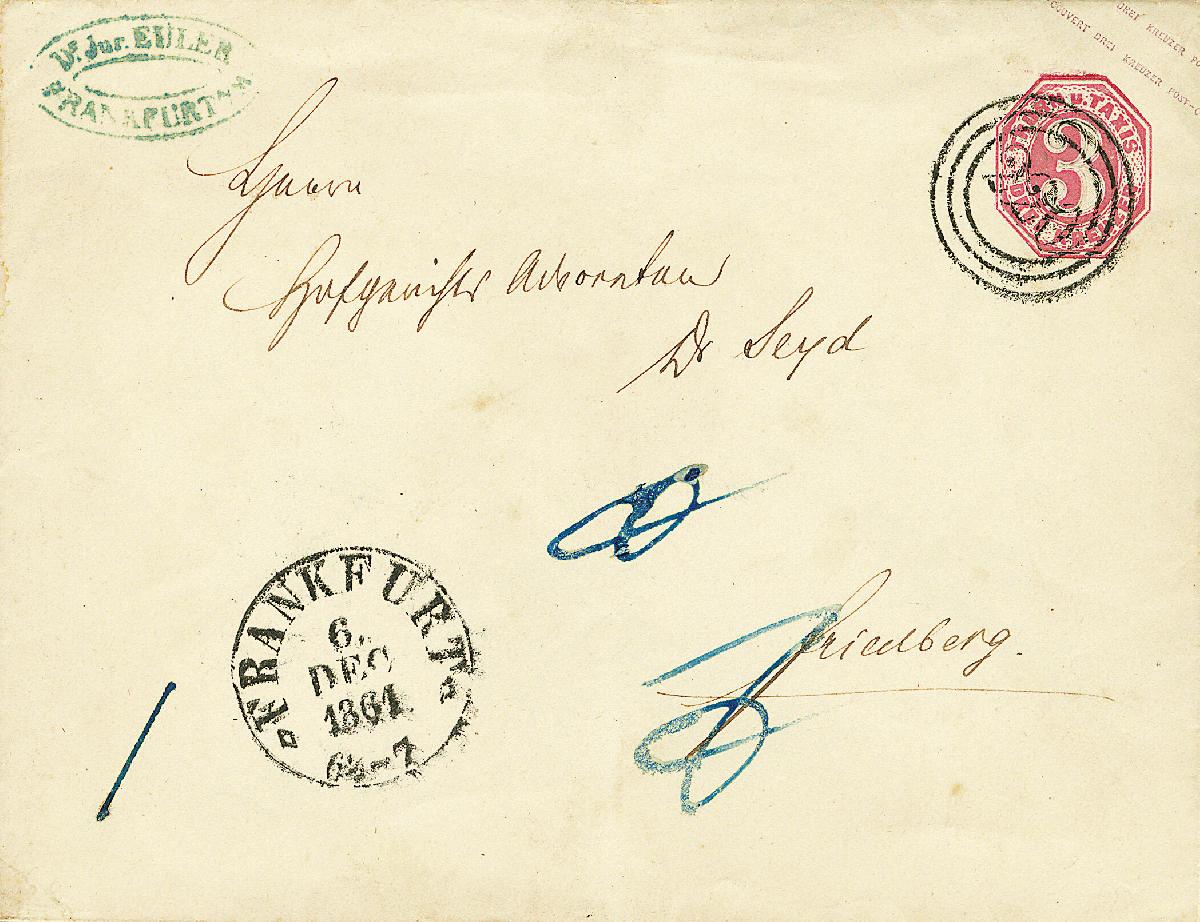 Dr. Jur. EULER
FRANKFURT
COUVERT DREI KREUZER POST-
DREI KREUZER PO
U. TAXIS
3
Herrn
Hofgerichts Advocaten
Dr Seyd
Friedberg.
FRANKFURT
6.
DEC
1861
6½-7